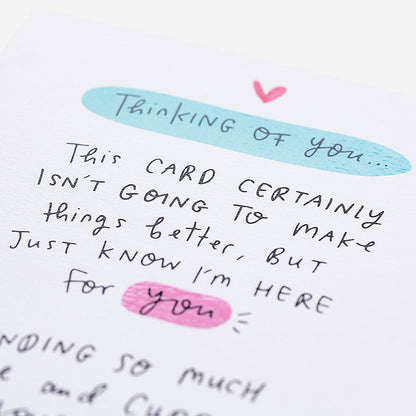 Thinking OF you...
This CARD CERTAINLY
ISN'T GOING TO MAKE
things better, BUT
JUST KNOW I'm HERE
For you
SO MUCH
and